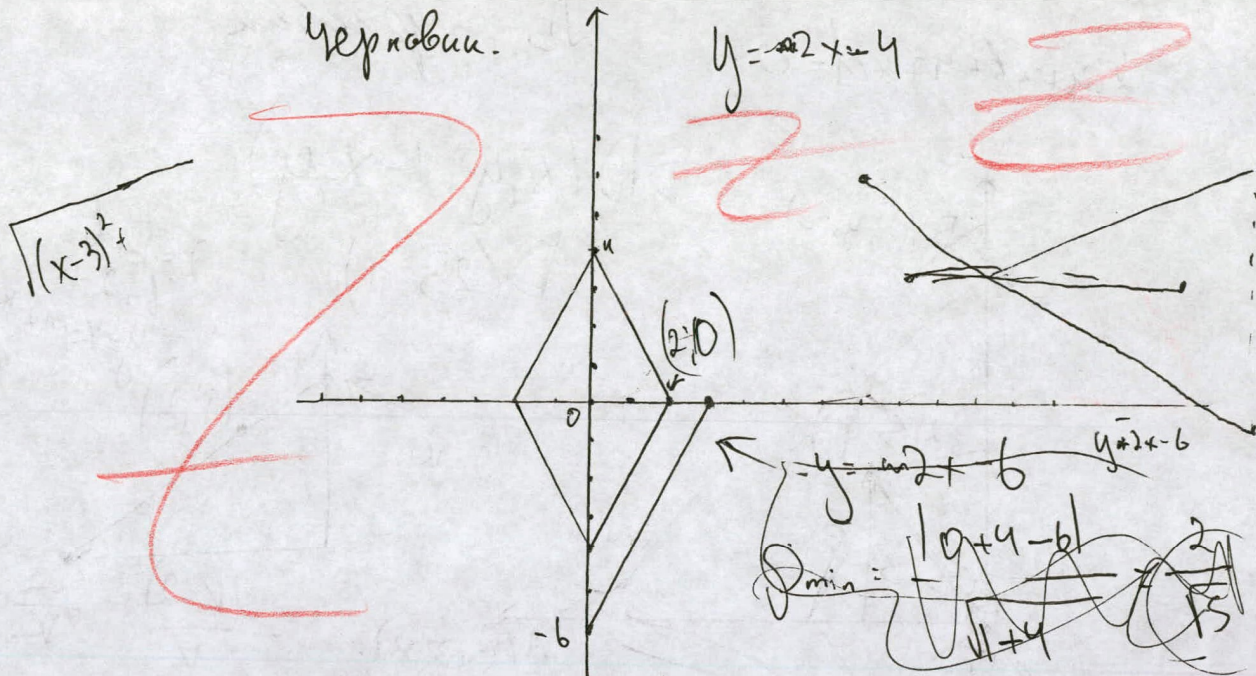 Черновик.
y = 2x - 4
√(x-3)² +
4
(2; 0)
0
y = 2x - 6
-6
|0 + 4 - 6|
√1 + 4
2
√5